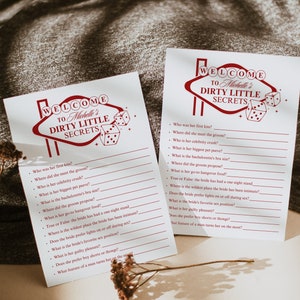 WELCOME
TO Michelle's
DIRTY LITTLE
SECRETS
Who was her first love?
Where did she meet the groom?
Who is her celebrity crush?
What is her biggest pet peeve?
What is the bachelorette's bra size?
Where did the groom propose?
What is her go-to hangover food?
True or False: the bride has had a one night stand.
Where is the wildest place the bride has been intimate?
Does the bride prefer lights on or off during sex?
What is the bride's favorite sex position?
What is her guilty pleasure?
Does she prefer sexy shorts or thongs?
What feature of a man turns her on the most?
WELCOME
TO Michelle's
DIRTY LITTLE
SECRETS
Who was her first love?
Where did she meet the groom?
Who is her celebrity crush?
What is her biggest pet peeve?
What is the bachelorette's bra size?
Where did the groom propose?
What is her go-to hangover food?
True or False: the bride has had a one night stand.
Where is the wildest place the bride has been intimate?
Does the bride prefer lights on or off during sex?
What is the bride's favorite sex position?
What is her guilty pleasure?
Does she prefer sexy shorts or thongs?
What feature of a man turns her on the most?